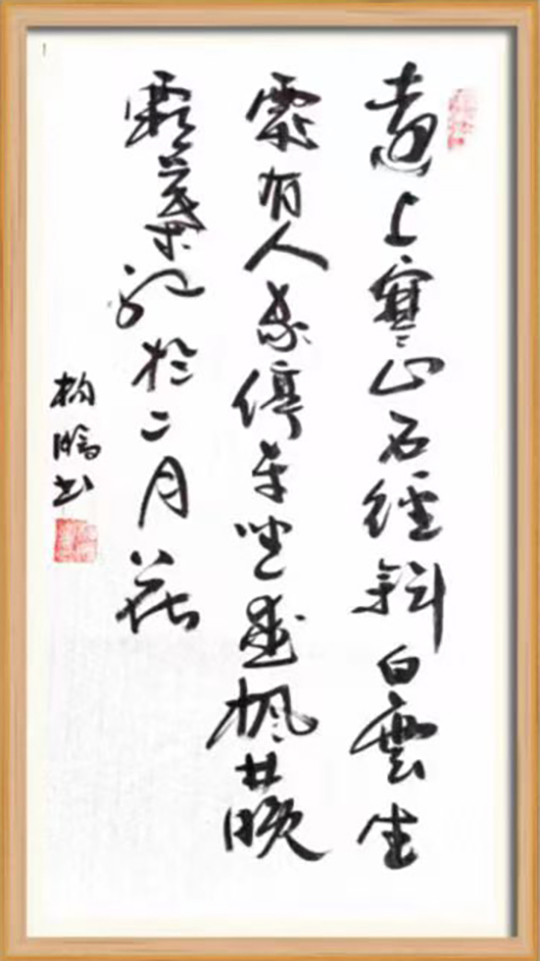 遠上寒山石經斜白雲生
處有人家停车坐愛楓林晚
霜葉紅於二月花
柏 书